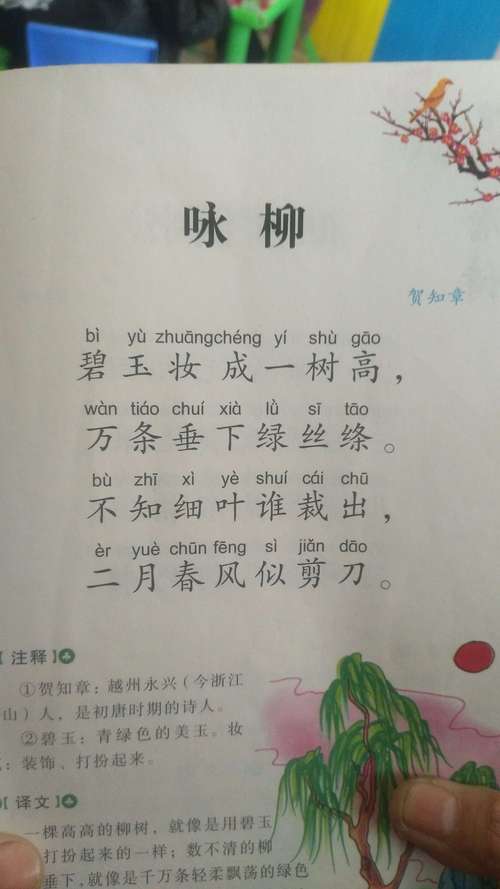 咏柳
贺知章
bì yù zhuāngchéng yí shù gāo
碧玉妆成一树高，
wàn tiáo chuí xià lǜ sī tāo
万条垂下绿丝绦。
bù zhī xì yè shuí cái chū
不知细叶谁裁出，
èr yuè chūn fēng sì jiǎn dāo
二月春风似剪刀。
【注释】
①贺知章：越州永兴（今浙江
山）人，是初唐时期的诗人。
②碧玉：青绿色的美玉。妆
：装饰、打扮起来。
【译文】
一棵高高的柳树，就像是用碧玉
打扮起来的一样；数不清的柳
垂下，就像是千万条轻柔飘荡的绿色